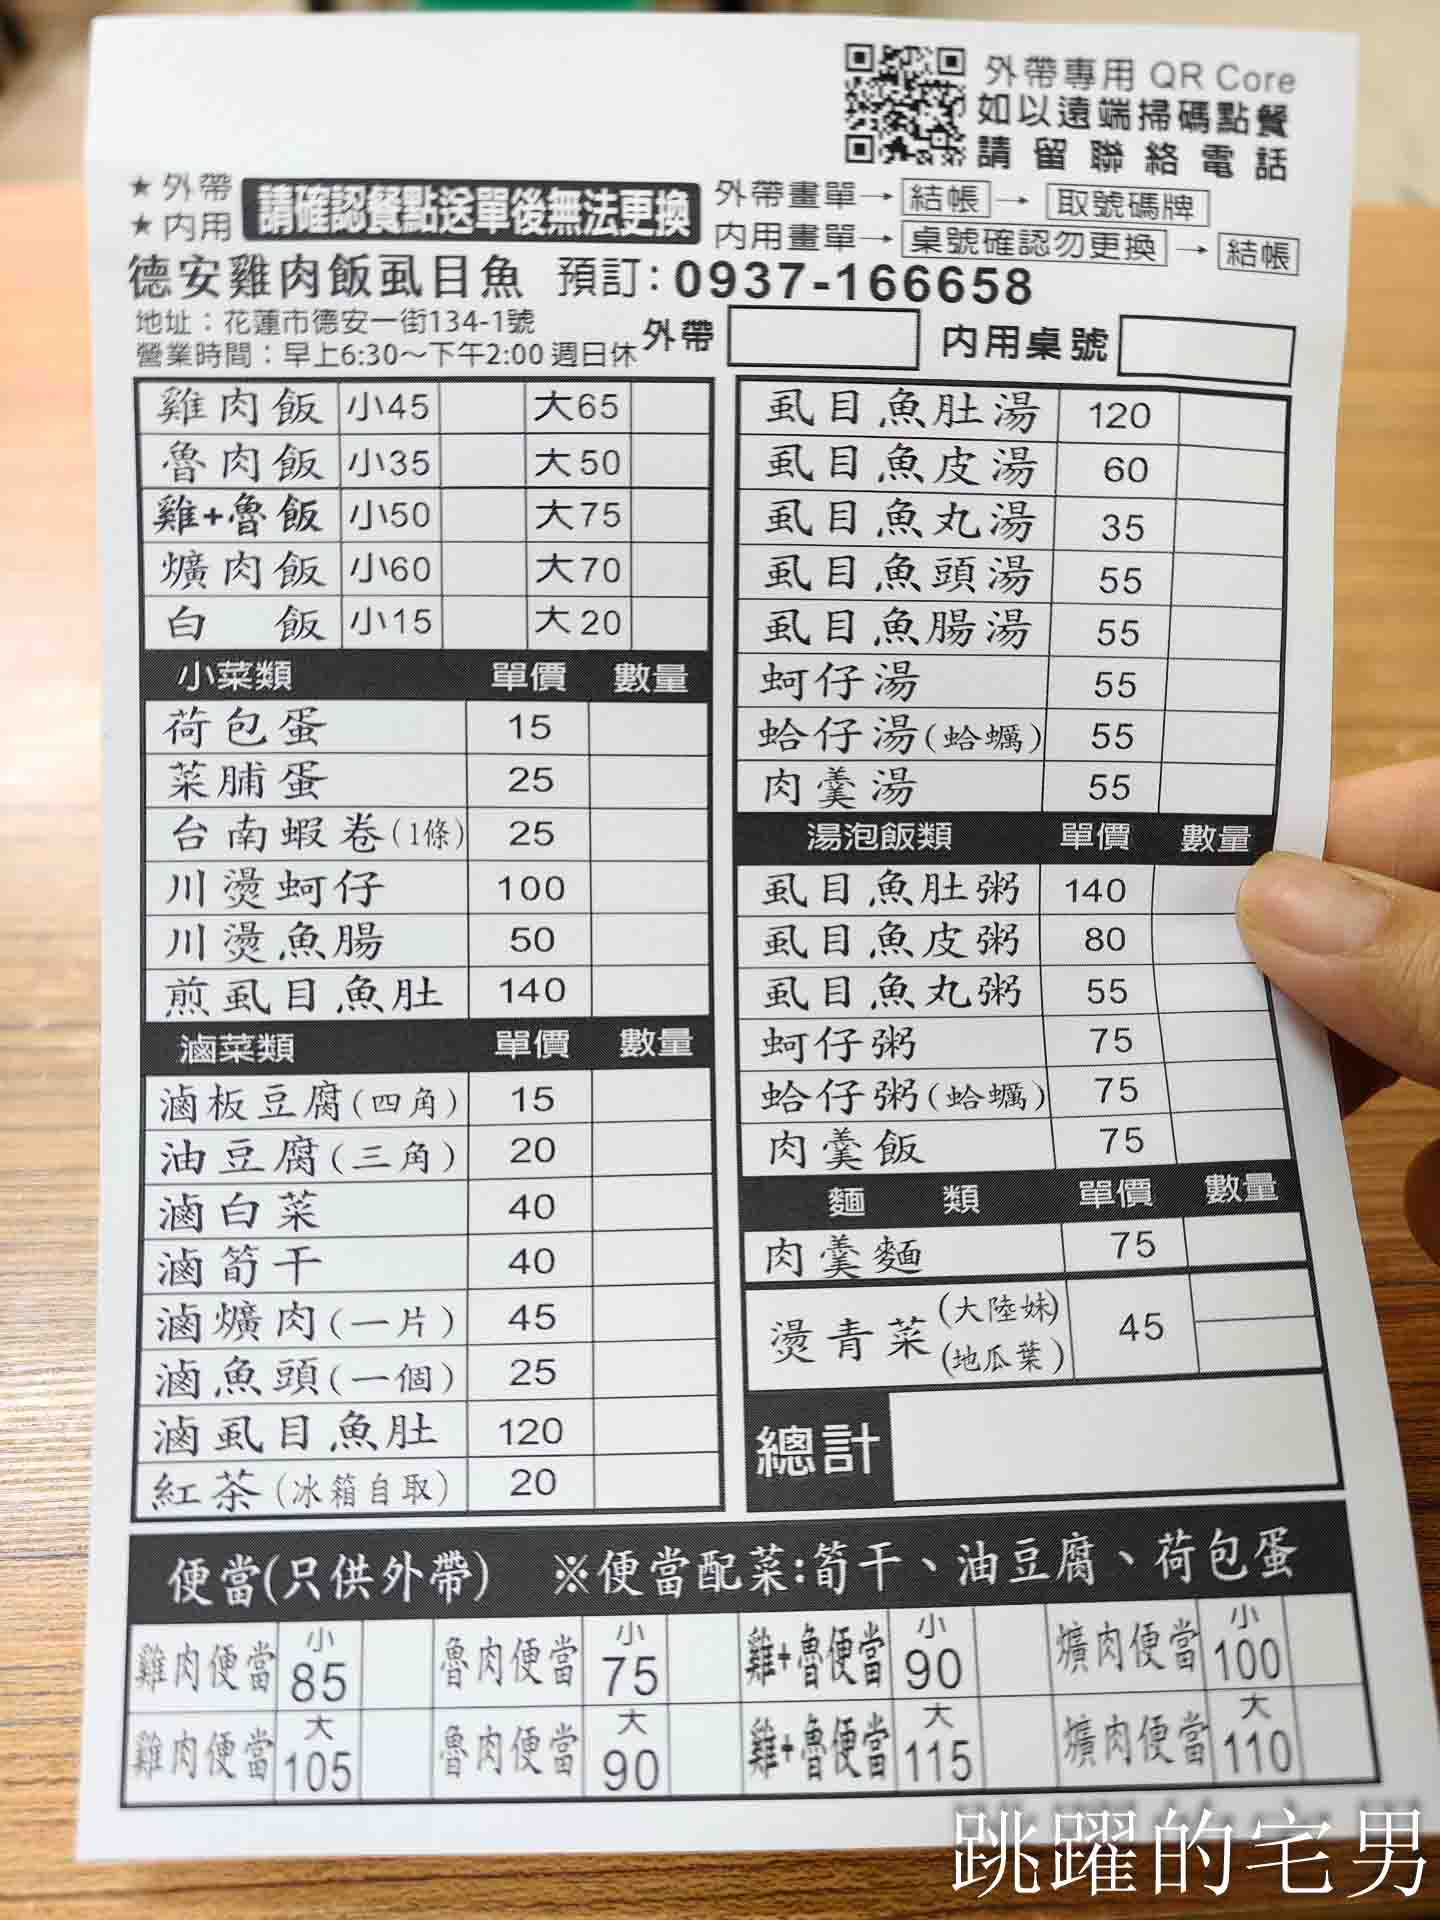 外帶專用 QR Core
如以遠端掃碼點餐
請留聯絡電話
★外帶
★內用
請確認餐點送單後無法更換
外帶畫單→結帳→取號碼牌
內用畫單→桌號確認勿更換→結帳
德安雞肉飯虱目魚 預訂：0937-166658
地址：花蓮市德安一街134-1號
營業時間：早上6:30～下午2:00 週日休
外帶 內用桌號
雞肉飯 小45 大65
魯肉飯 小35 大50
雞+魯飯 小50 大75
爌肉飯 小60 大70
白 飯 小15 大20
小菜類 單價 數量
荷包蛋 15
菜脯蛋 25
台南蝦卷(1條) 25
川燙蚵仔 100
川燙魚腸 50
煎虱目魚肚 140
滷菜類 單價 數量
滷板豆腐(四角) 15
油豆腐(三角) 20
滷白菜 40
滷筍干 40
滷爌肉(一片) 45
滷魚頭(一個) 25
滷虱目魚肚 120
紅茶(冰箱自取) 20
虱目魚肚湯 120
虱目魚皮湯 60
虱目魚丸湯 35
虱目魚頭湯 55
虱目魚腸湯 55
蚵仔湯 55
蛤仔湯(蛤蠣) 55
肉羹湯 55
湯泡飯類 單價 數量
虱目魚肚粥 140
虱目魚皮粥 80
虱目魚丸粥 55
蚵仔粥 75
蛤仔粥(蛤蠣) 75
肉羹飯 75
麵 類 單價 數量
肉羹麵 75
燙青菜(大陸妹)(地瓜葉) 45
總計
便當(只供外帶) ※便當配菜:筍干、油豆腐、荷包蛋
雞肉便當 小85 魯肉便當 小75 雞+魯便當 小90 爌肉便當 小100
雞肉便當 大105 魯肉便當 大90 雞+魯便當 大115 爌肉便當 大110
跳躍的宅男